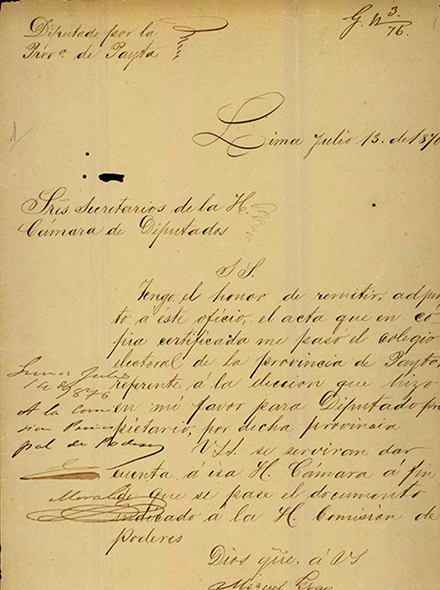 Diputado por la
Prova. de Payta
G. N 3/76.
Lima Julio 13. de 187
Sres Secretarios de la H.
Cámara de Diputados
S S.
Tengo el honor de remitir, adjun
to á este oficio, el acta que en có
pia certificada me pasó el colegio
electoral de la provincia de Payta,
referente á la eleccion que hizo
en mi favor para Diputado pro
pietario, por dicha provincia
VSS. se serviran dar
cuenta á esa H. Cámara á fin
de que se pase el documento
indicado á la H. Comisión de
poderes
Dios gue. á VS
Miguel Grau
Lima, Julio
14 de 1876
A la Comi
sion Princi
pal de Poderes
Morales